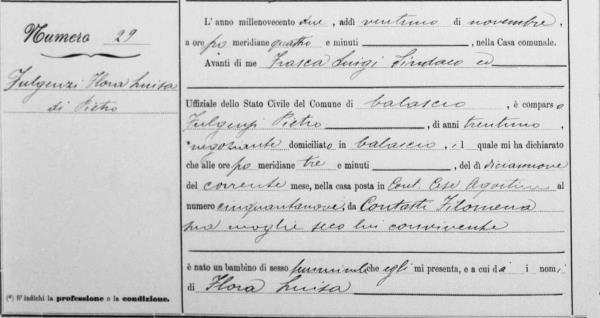 Numero 29
Fulgenzi Flora Luisa
di Pietro
(*) Si indichi la professione o la condizione.
L'anno millenovecento due, addì ventuno di novembre,
a ore po meridiane quattro e minuti, nella Casa comunale.
Avanti di me Frasca Luigi Sindaco ed
Uffiziale dello Stato Civile del Comune di Calascio, è comparso
Fulgenzi Pietro, di anni trentuno,
*negoziante domiciliato in Calascio, il quale mi ha dichiarato
che alle ore po meridiane tre e minuti, del dì diciannove
del corrente mese, nella casa posta in Cese al
numero cinquantanove, da Contasti Filomena
sua moglie seco lui convivente
è nato un bambino di sesso femminile che egli mi presenta, e a cui dà i nomi
di Flora Luisa